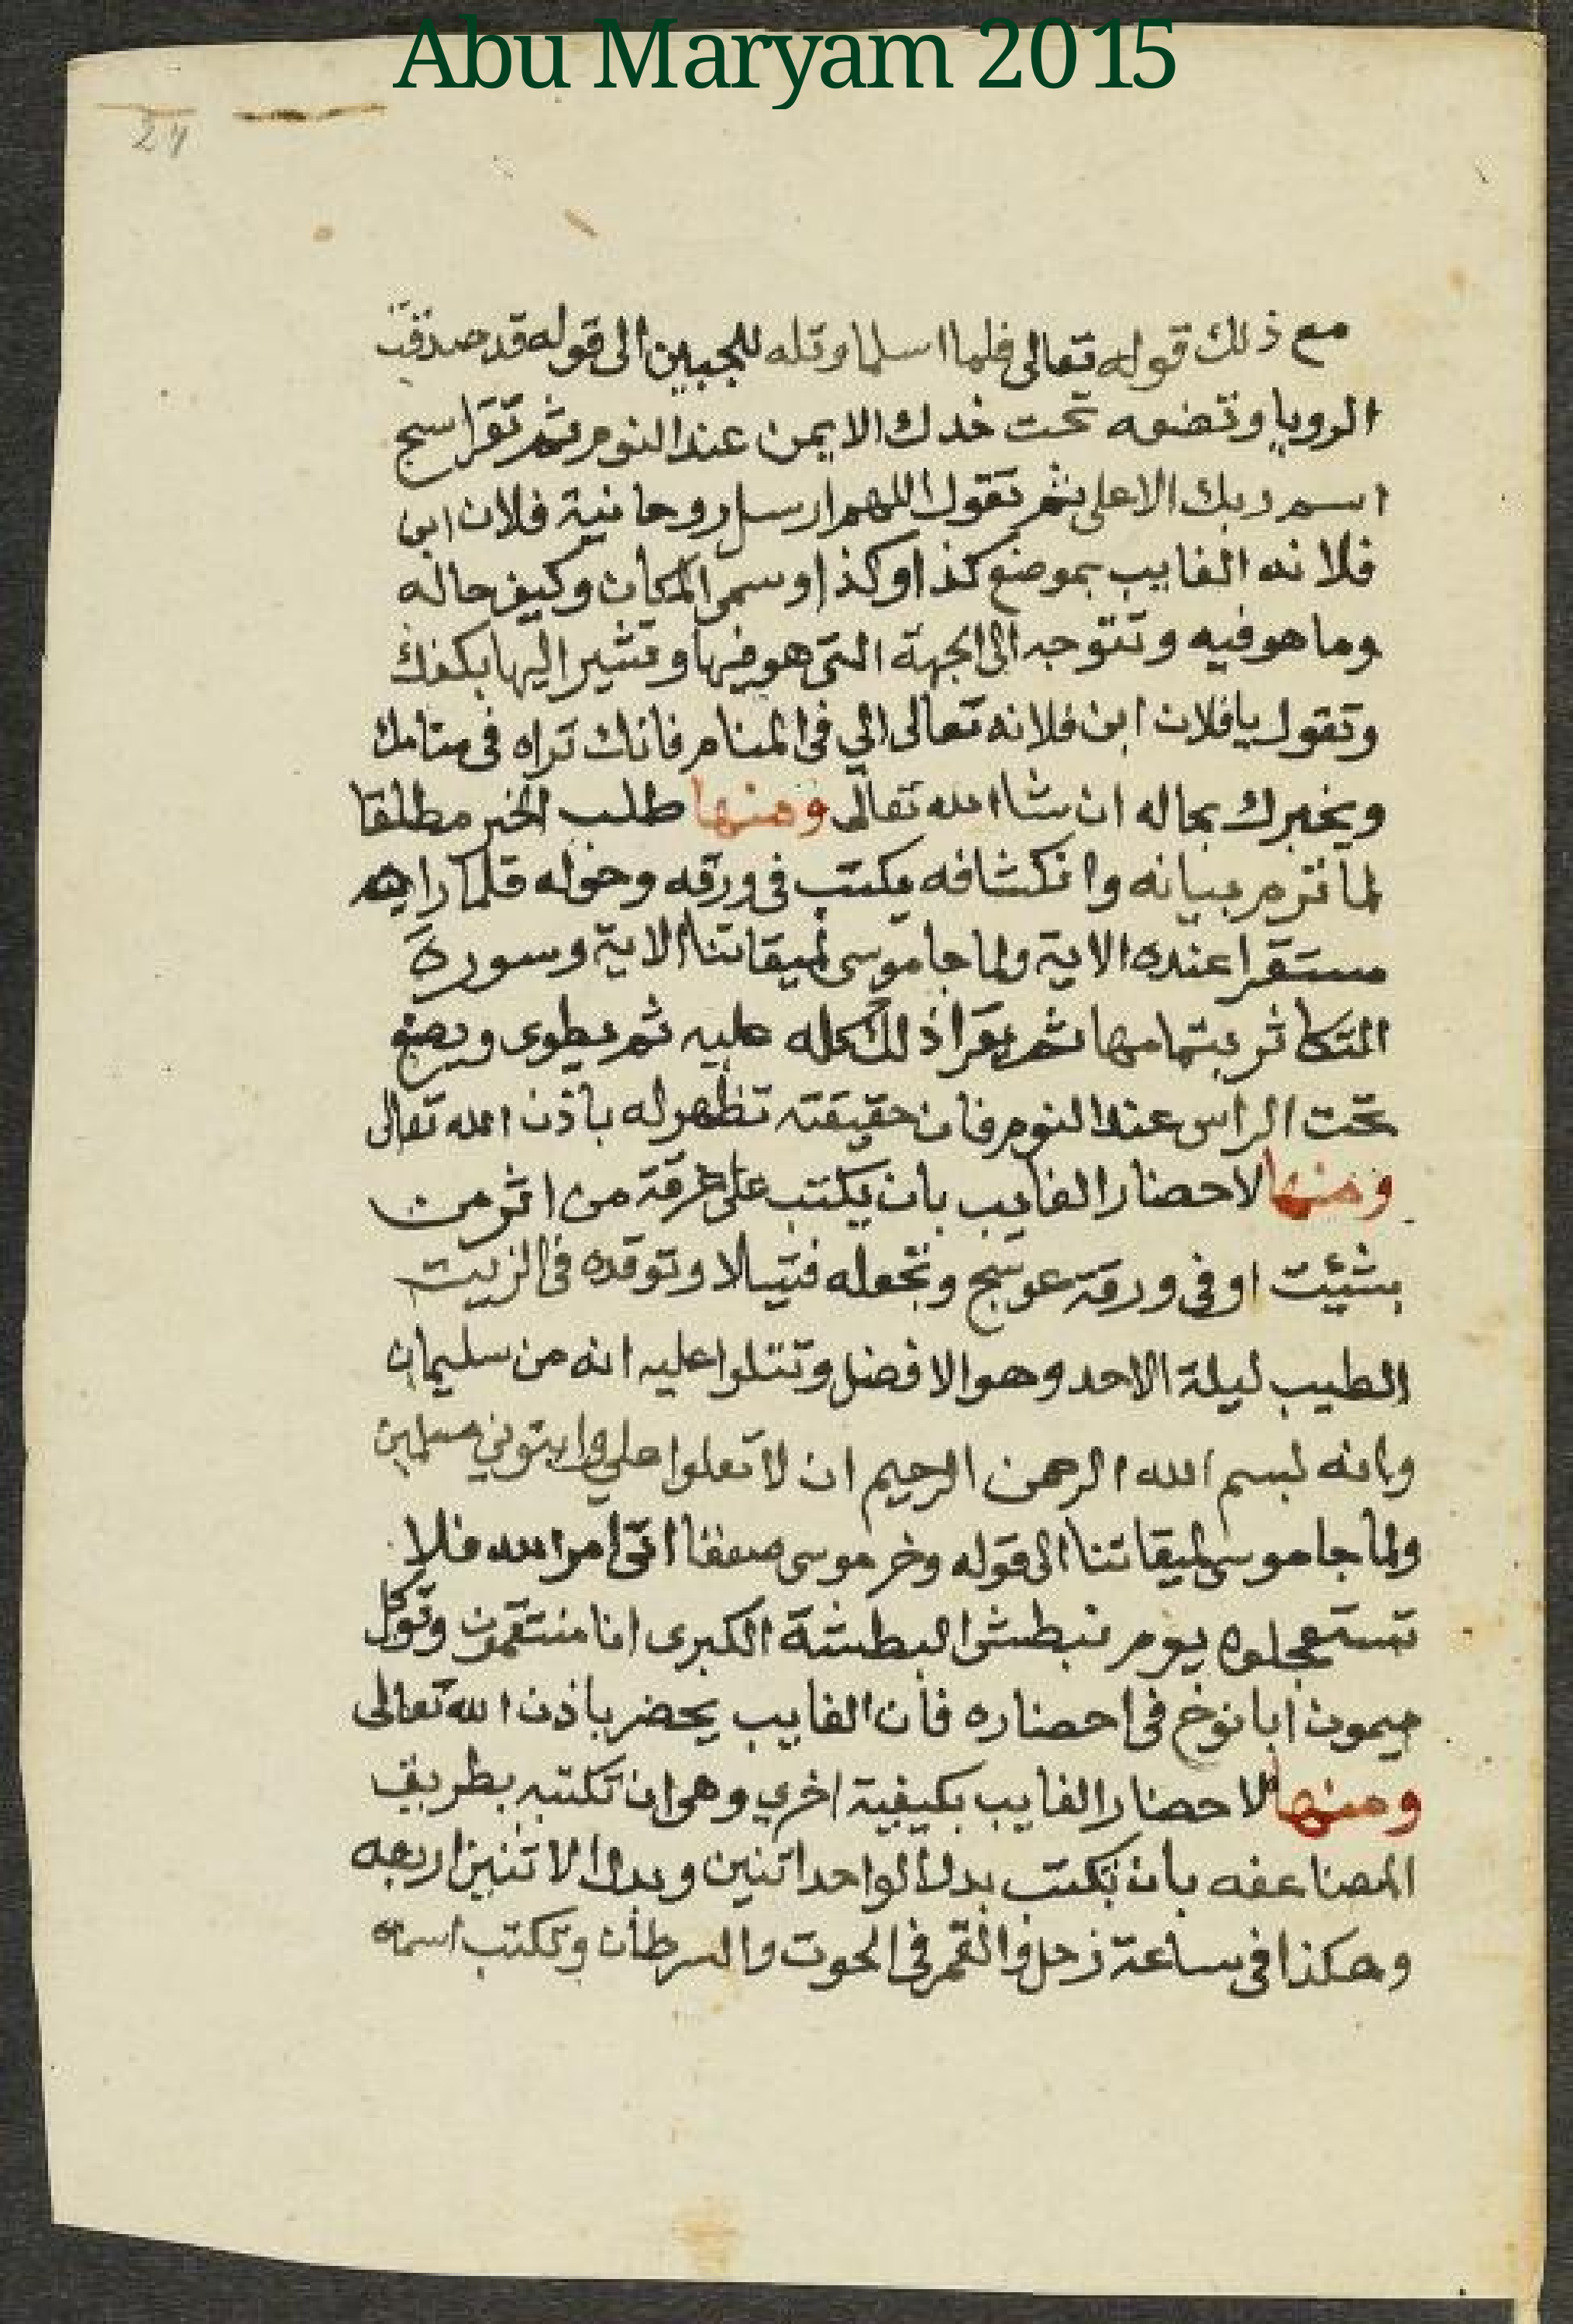 Abu Maryam 2015
24
مع ذلك قوله تعالى فلما اسلما وتله للجبين الى قوله قد صدقت
الرويا وتضعه تحت خدك الايمن عند النوم ثم تقرا سبح
اسم ربك الاعلى ثم تقول اللهم ارسل روحانية فلان ابن
فلانه الغايب بموضع كذا وكذا وسمى المكان وكيف حاله
وما هو فيه وتتوجه الى الجهة التى هو فيها وتشير اليها بكفك
وتقول يا فلان ابن فلانه تعالى الي فى المنام فانك تراه فى منامك
ويخبرك بحاله ان شا الله تعالى ومنها طلب الخبر مطلقا
لما تروم بيانه وانكشافه يكتب فى ورقه وحوله فلما راه
مستقرا عنده الاية ولما جا موسى لميقاتنا الاية وسورة
التكاثر بتمامها ثم يقرا ذلك كله عليه ثم يطوى ويضع
تحت الراس عند النوم فان حقيقته تظهر له باذن الله تعالى
ومنها لاحضار الغايب بان يكتب على خرقة من اثر من
شئت او فى ورقة عوسج وتجعله فتيلا وتوقده فى الزيت
الطيب ليلة الاحد وهو الافضل وتتلوا عليه انه من سليمان
وانه لبسم الله الرحمن الرحيم ان لا تعلوا علي واتوني مسلمين
ولما جا موسى لميقاتنا الى قوله وخر موسى صعقا اتى امر الله فلا
تستعجلوه يوم نبطش البطشة الكبرى انا منتقمون وتوكل
ميمون ابا نوخ فى احضاره فان الغايب يحضر باذن الله تعالى
ومنها لاحضار الغايب بكيفية اخري وهى ان تكتبه بطريق
المضاعفه بان تكتب بدل الواحد اثنين وبدل الاثنين اربعه
وهكذا فى ساعة زحل والقمر فى الحوت والسرطان وتكتب اسمه